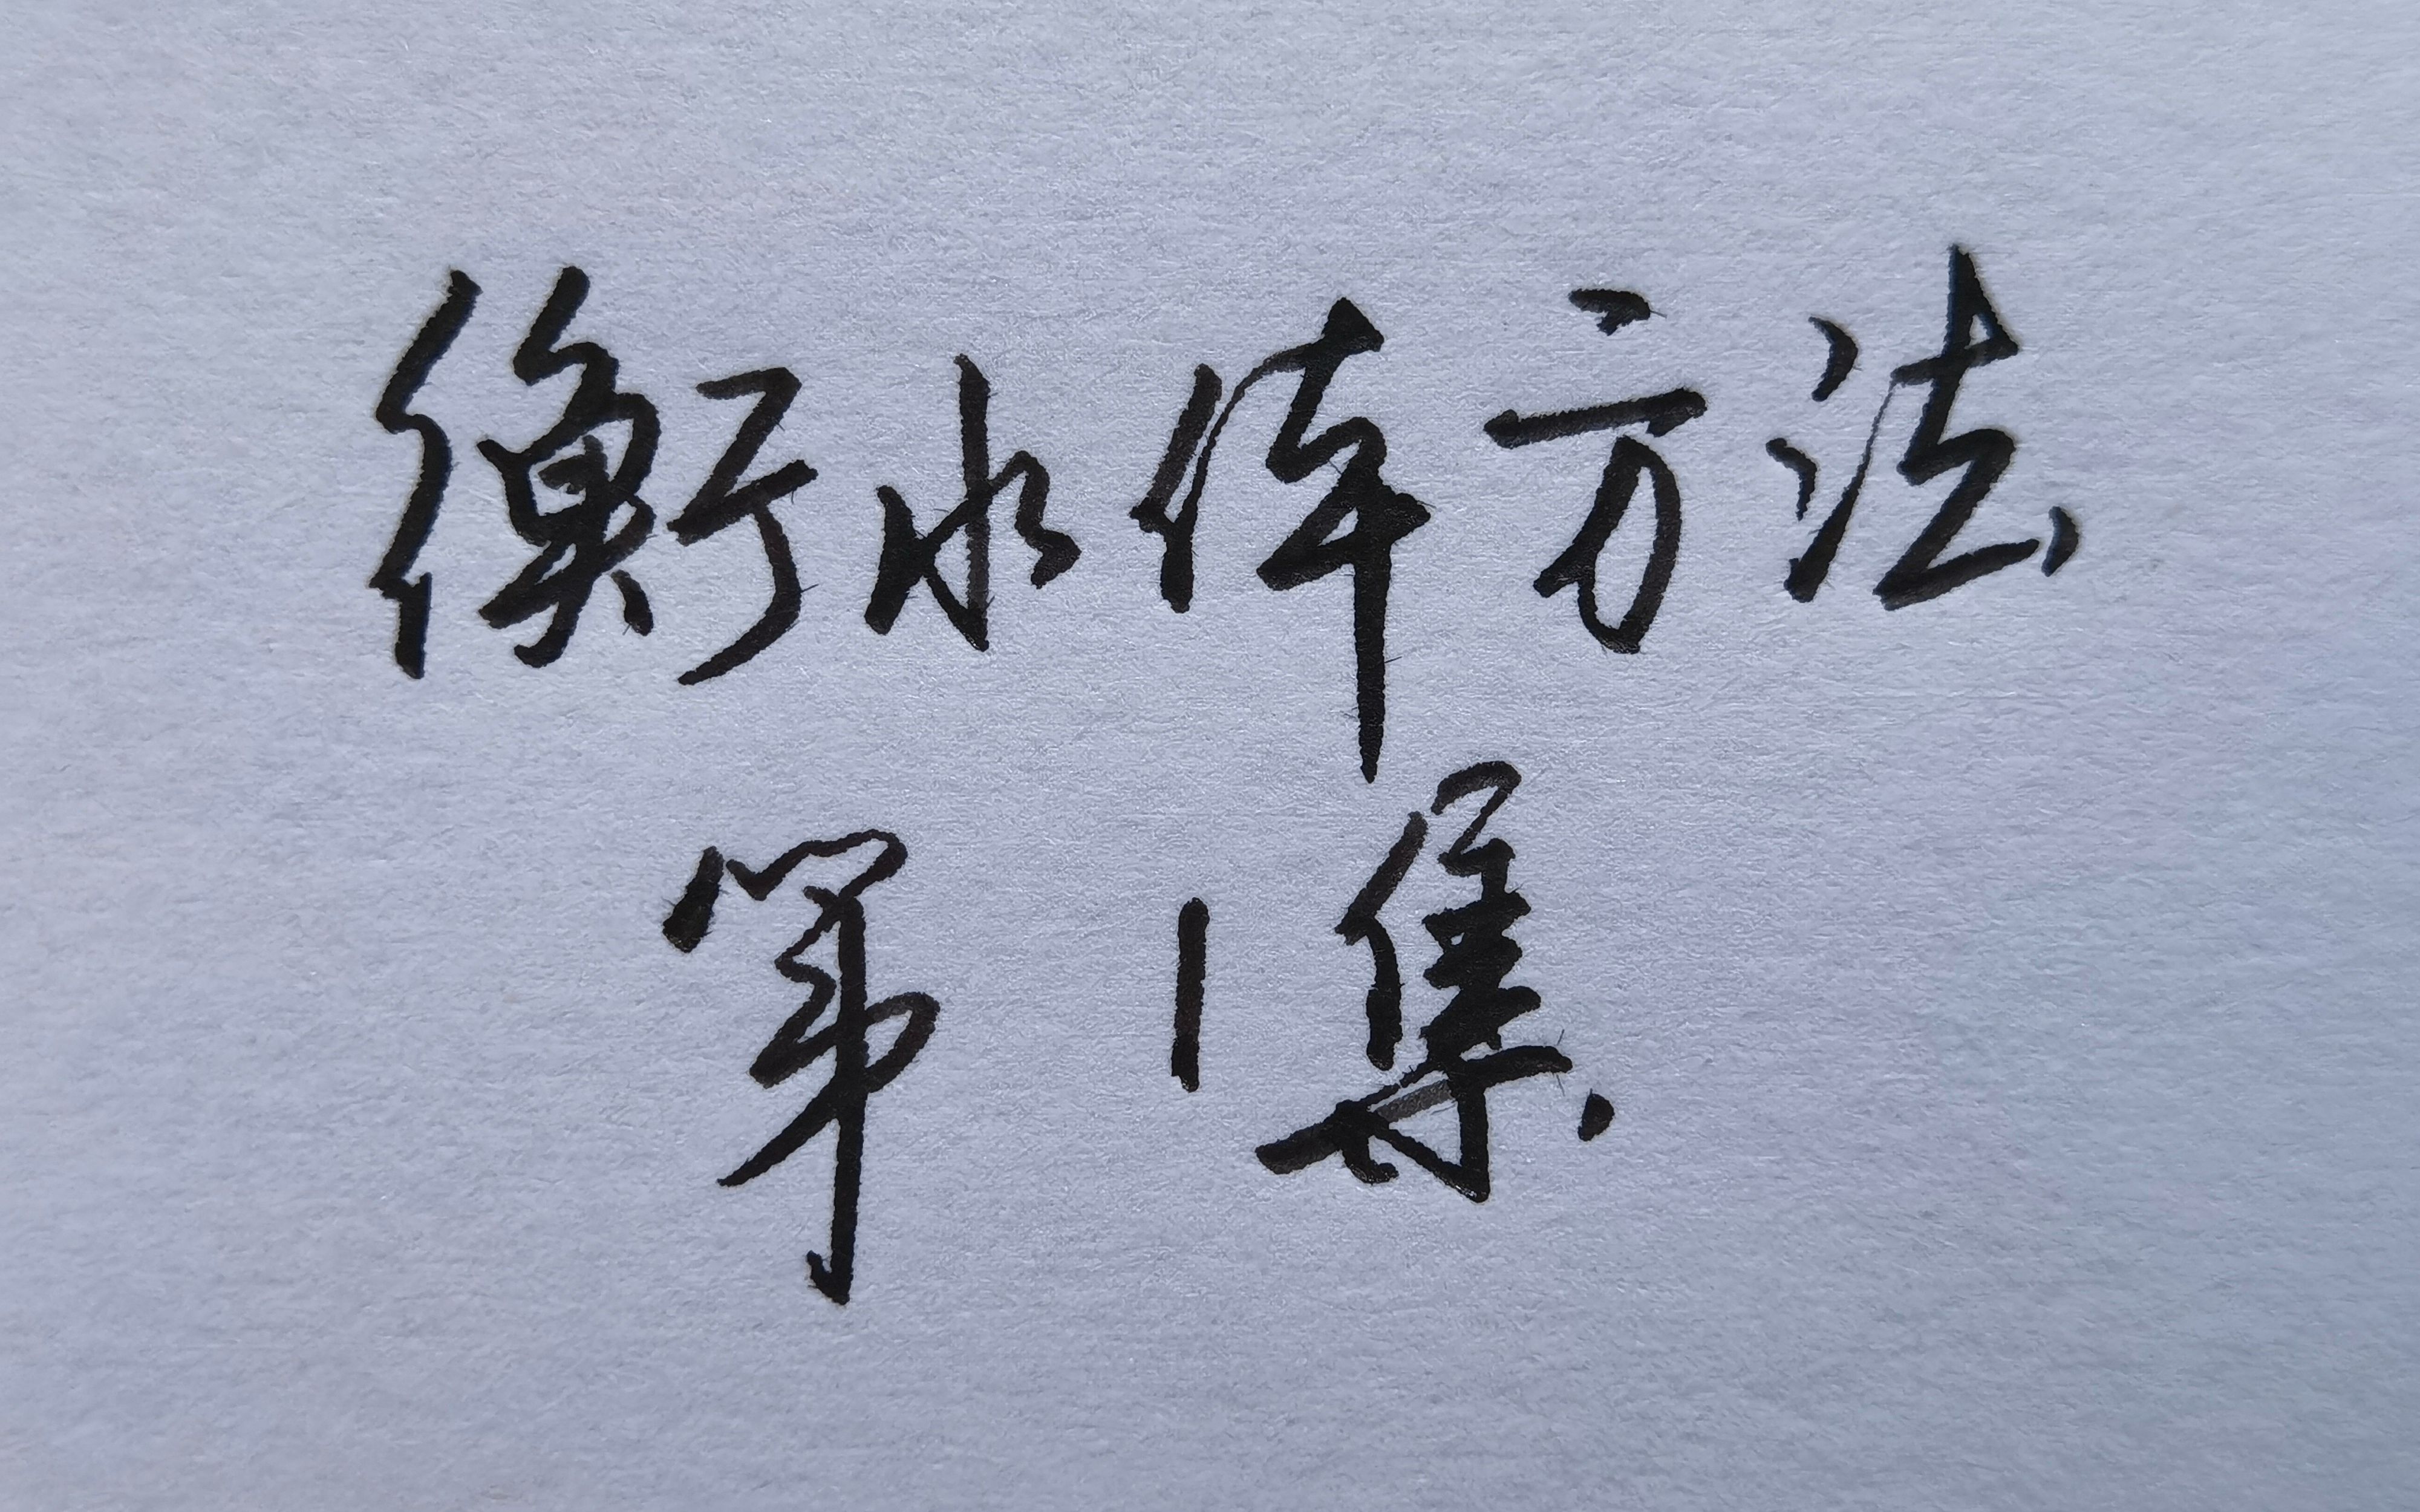 衡水体方法
第1集